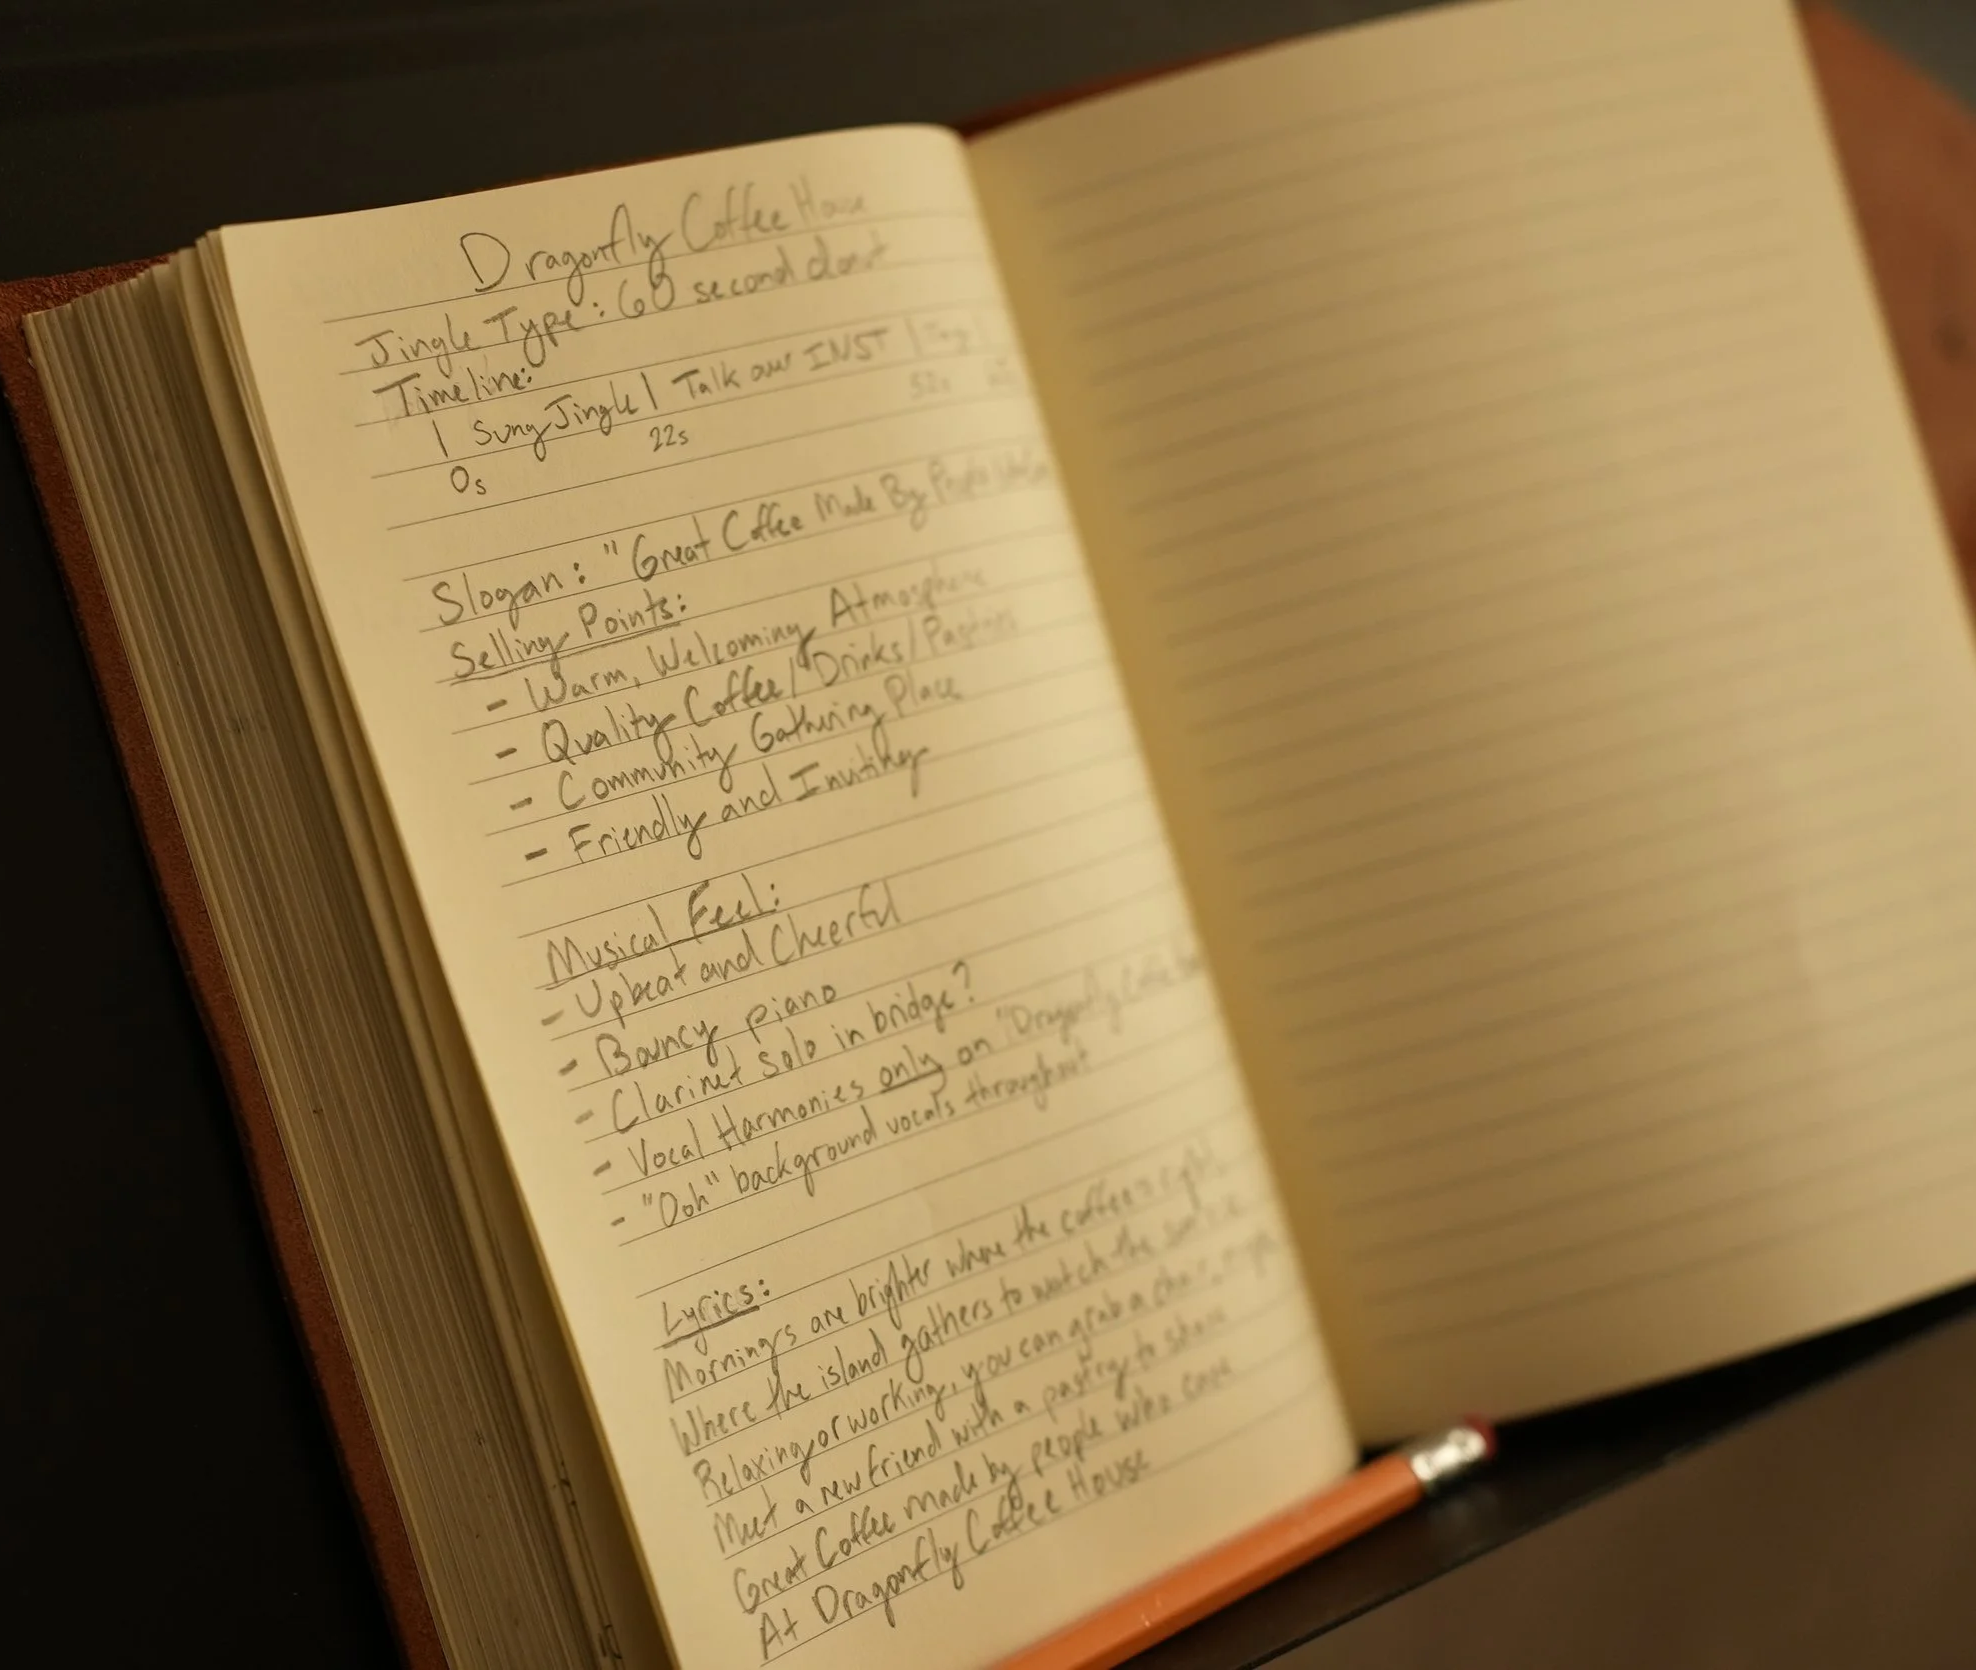 Dragonfly Coffee House
Jingle Type: 60 second donut
Timeline:
| Sung Jingle | Talk over INST |
0s 22s 52s
Slogan: "Great Coffee Made By People Who
Selling Points:
- Warm, Welcoming Atmosphere
- Quality Coffee/Drinks/Pastries
- Community Gathering Place
- Friendly and Inviting
Musical Feel:
- Upbeat and Cheerful
- Bouncy piano
- Clarinet solo in bridge?
- Vocal Harmonies only on "Dragonfly Coffee
- "Ooh" background vocals throughout
Lyrics:
Mornings are brighter where the coffee's right
Where the island gathers to watch the
Relaxing or working, you can grab a chair
Meet a new friend with a pastry to share
Great Coffee made by people who care
At Dragonfly Coffee House